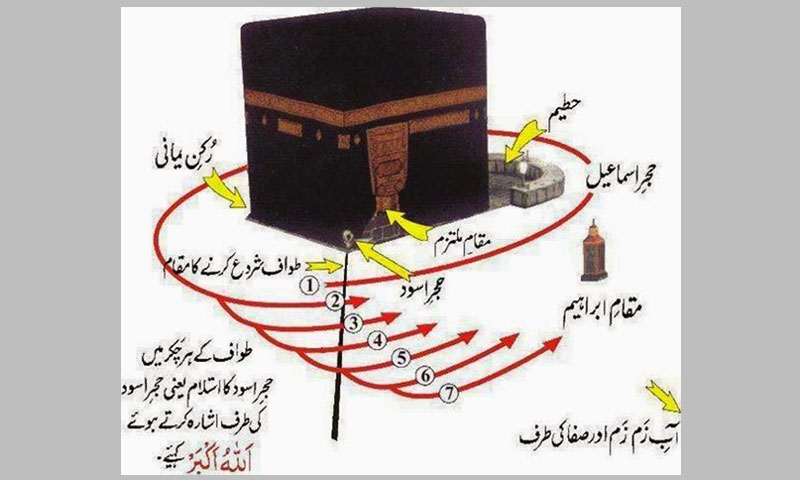 حطیم
رُکنِ یمانی
حجرِ اسماعیل
مقامِ ملتزم
طواف شروع کرنے کا مقام
حجرِ اسود
1
2
3
4
5
6
7
مقامِ ابراہیم
طواف کے ہر چکر میں
حجرِ اسود کا استلام یعنی حجرِ اسود
کی طرف اشارہ کرتے ہوئے
اَللّٰهُ اَکْبَرْ کہئے۔
آبِ زَم زَم اور صفا کی طرف